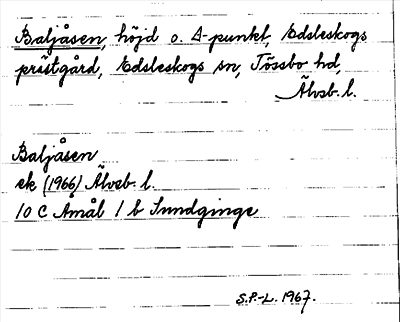 Baljåsen, höjd o. Δ-punkt, Edsleskogs
prästgård, Edsleskogs sn, Tössbo hd,
Älvsb. l.
Baljåsen
ek (1966) Älvsb. l.
10 C Åmål 1 b Sundginge
S.P.-L. 1967.